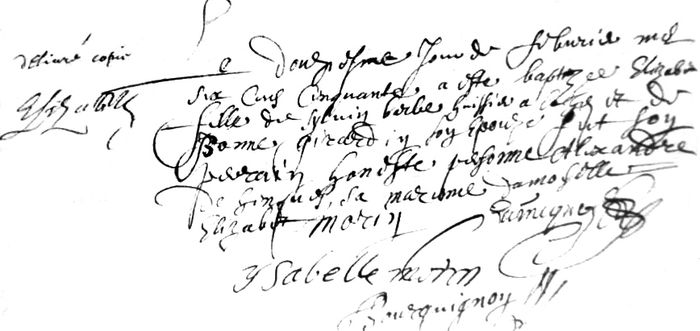 deliuré copie
Elizabeth
Le douziesme Jour de feburier mil
six cens cinquante a esté baptizee Elizabet
fille de berbe huissier a et de
Bonne girardin son Epouze fut son
parain honeste personne Alexandre
de sa maraine damoiselle
Elizabet morin
Ysabelle morin
Bourguignon